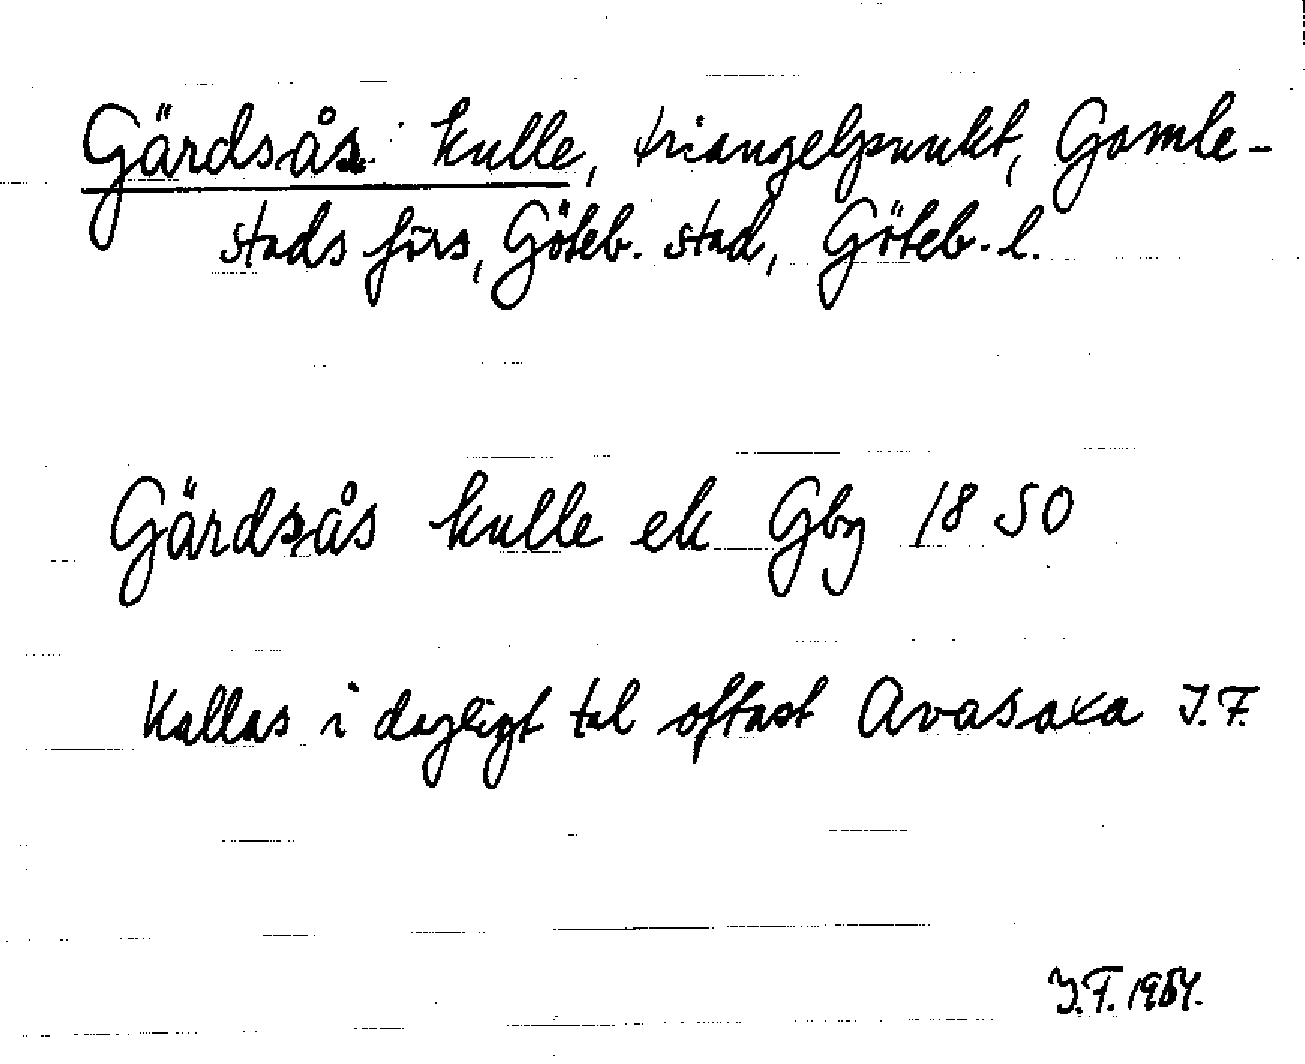 Gärdsås kulle, triangelpunkt, Gamle-
stads förs, Göteb. stad, Göteb. l.
Gärdsås kulle ek Gbg 1850
Kallas i dagligt tal oftast Avasaxa I.F.
I.F. 1954.